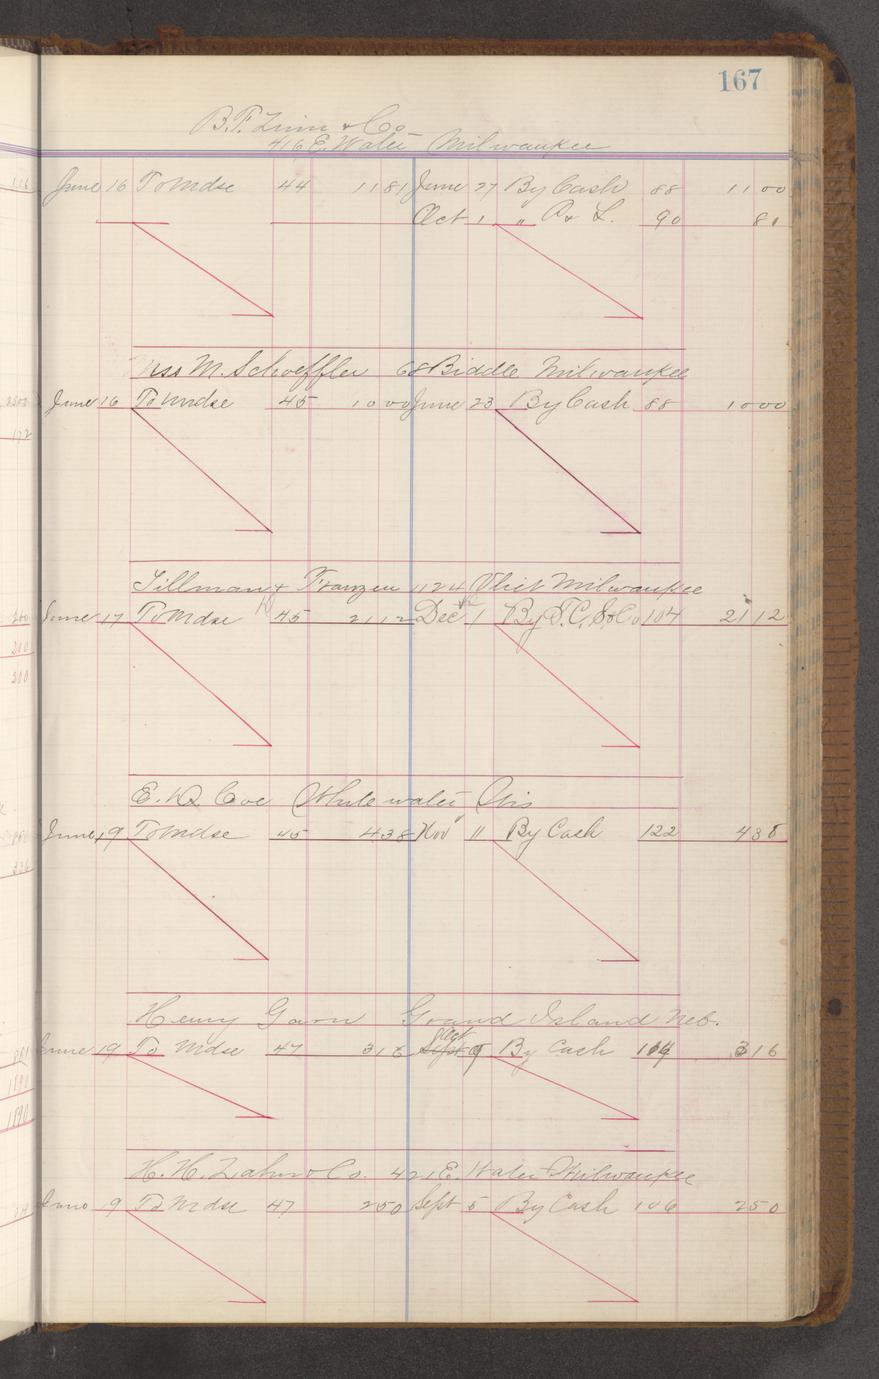 167
B.F. Zinn & Co
416 E. Water Milwaukee
June 16 To Mdse 44 11 81 June 27 By Cash 88 11 00
Oct 1 " P & L. 90 81
M. Schoeffler 68 Biddle Milwaukee
June 16 To Mdse 45 10 00 June 23 By Cash 88 10 00
Tillman & Franzen 1124 Vliet Milwaukee
June 17 To Mdse 45 21 12 Dec 1 By T.C. & Co 104 21 12
E. D. Coe Whitewater Wis
June 19 To Mdse 45 4 38 Nov 11 By Cash 122 4 38
Henry Garn Grand Island Neb.
June 19 To Mdse 47 3 16 Oct 9 By Cash 3 16
H. H. Zahn & Co. 421 E. Water Milwaukee
June 19 To Mdse 47 2 50 Sept 5 By Cash 106 2 50